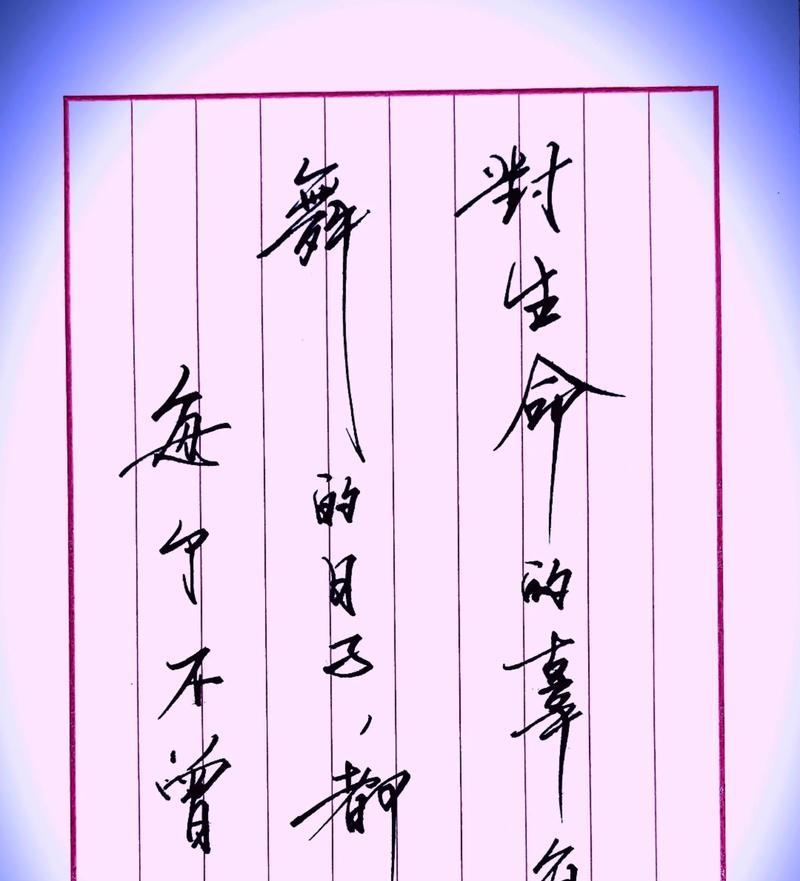 每个不曾
舞的日子，都
對生命的辜